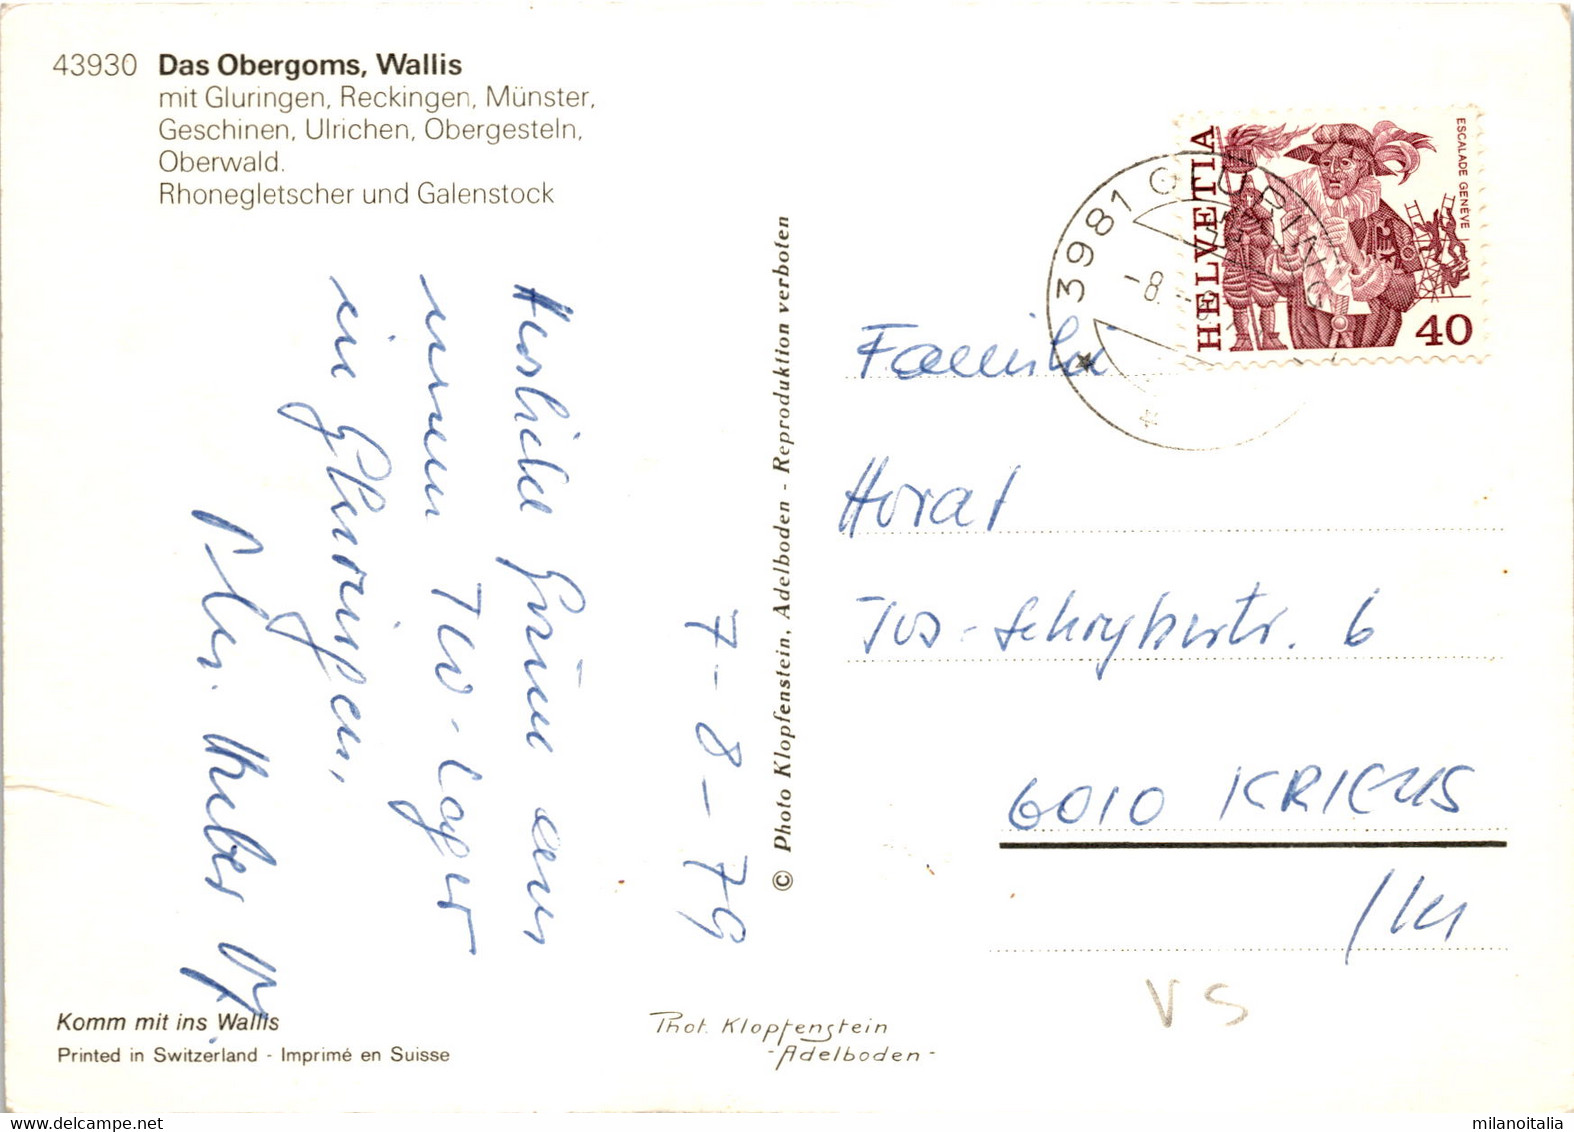 43930 Das Obergoms, Wallis
mit Gluringen, Reckingen, Münster,
Geschinen, Ulrichen, Obergesteln,
Oberwald.
Rhonegletscher und Galenstock
7-8-79
Herzliche Grüsse aus
unserem Lager
in Gluringen,
Huber
Komm mit ins Wallis
Printed in Switzerland - Imprimé en Suisse
© Photo Klopfenstein, Adelboden - Reproduktion verboten
Phot. Klopfenstein
-Adelboden-
HELVETIA
ESCALADE GENÈVE
40
3981 GLURINGEN
-8.
Familie
Horat
6
6010 KRIENS
/Lu
VS
milanoitalia